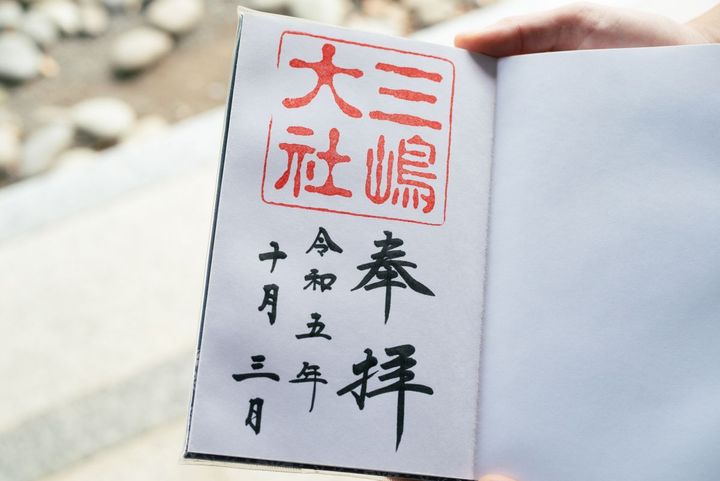 三嶋
大社
奉拝
令和五年
十月三日